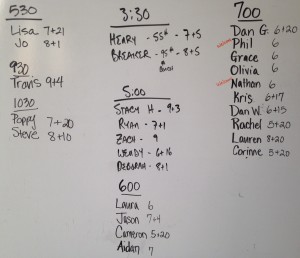 530
Lisa 7+21
Jo 8+1
930
Travis 9+4
1030
Poppy 7+20
Steve 8+10
3:30
HENRY - 55# - 7+5
BREAKER - 95# - 8+5
5:00
STACY H - 9+3
RYAN - 7+1
ZACH - 9
WENDY - 6+16
DEBORAH - 8+1
600
Laura 6
Jason 7+4
Cameron 5+20
Aidan 7
700
Dan G. 6+20
Phil 6
Grace 6
Olivia 6
Nathan 6
Kris 6+17
Dan W. 6+15
Rachel 3+20
Lauren 8+20
Corinne 3+20